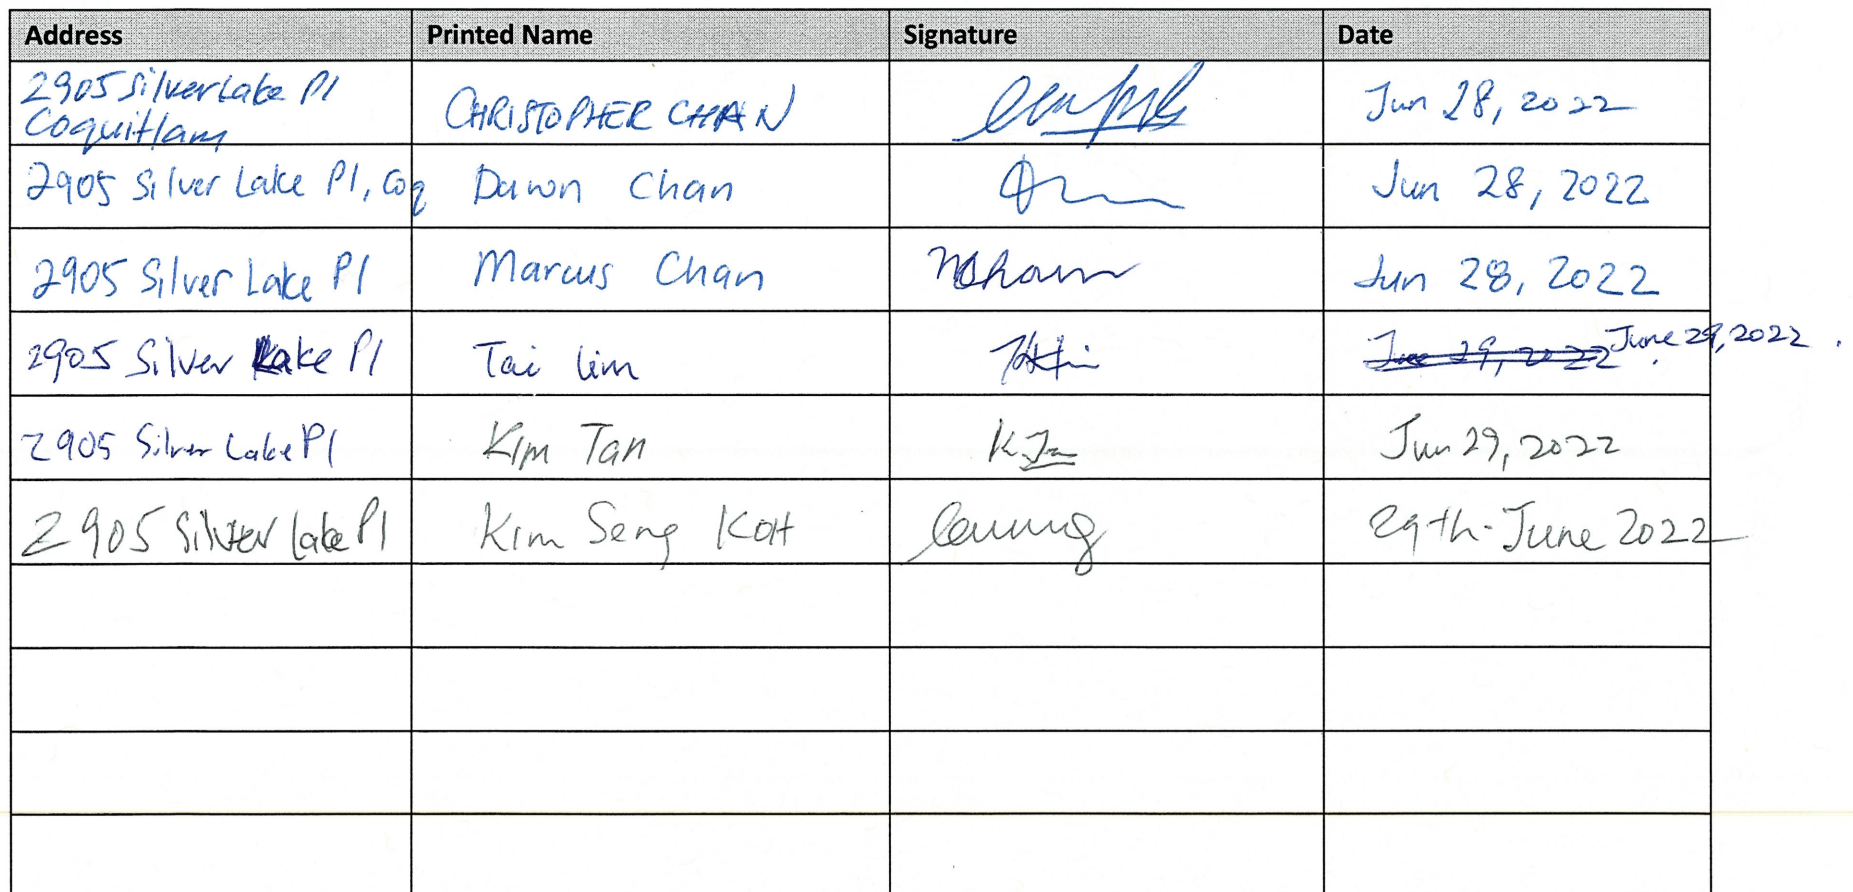 Address Printed Name Signature Date
2905 Silver Lake Pl
Coquitlam CHRISTOPHER CHAN Jun 28, 2022
2905 Silver Lake Pl, Coq Dawn Chan Jun 28, 2022
2905 Silver Lake Pl Marcus Chan Jun 28, 2022
2905 Silver Lake Pl Tai Lim June 29, 2022 June 29, 2022.
2905 Silver Lake Pl Kim Tan Jun 29, 2022
2905 Silver Lake Pl Kim Seng KOH 29th-June 2022